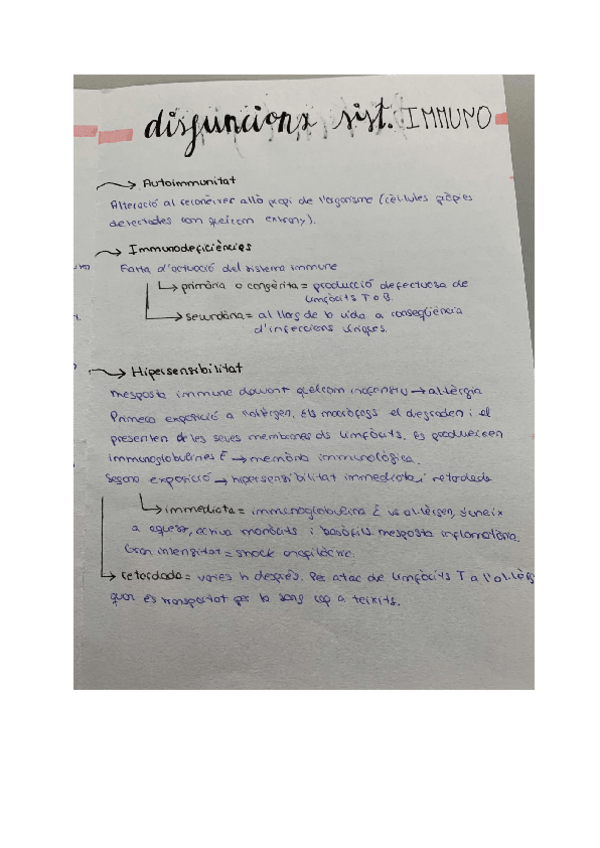 disfuncions sist. IMMUNO
→ Autoimmunitat
Alteració al reconèixer allò propi de l'organisme (cèl·lules pròpies
detectades com quelcom extrany).
→ Immunodeficiències
Falta d'actuació del sistema immune
→ primària o congènita = producció defectuosa de
limfòcits T o B.
→ secundària = al llarg de la vida a conseqüència
d'infeccions víriques.
→ Hipersensibilitat
Resposta immune davant quelcom inofensiu → al·lèrgia
Primera exposició a l'al·lèrgen. Els macròfags el degraden i el
presenten de les seves membranes als limfòcits. Es produeixen
immunoglobulines E → memòria immunològica.
Segona exposició → hipersensibilitat immediata i retardada
→ immediata = immunoglobulina E vs al·lèrgen, s'uneix
a aquest, activa monòcits i basòfils resposta inflamatòria.
Gran intensitat = shock anafilàctic.
→ retardada = varies h després. Per atac de limfòcits T a l'al·lèrg
quan és transportat per la sang cap a teixits.